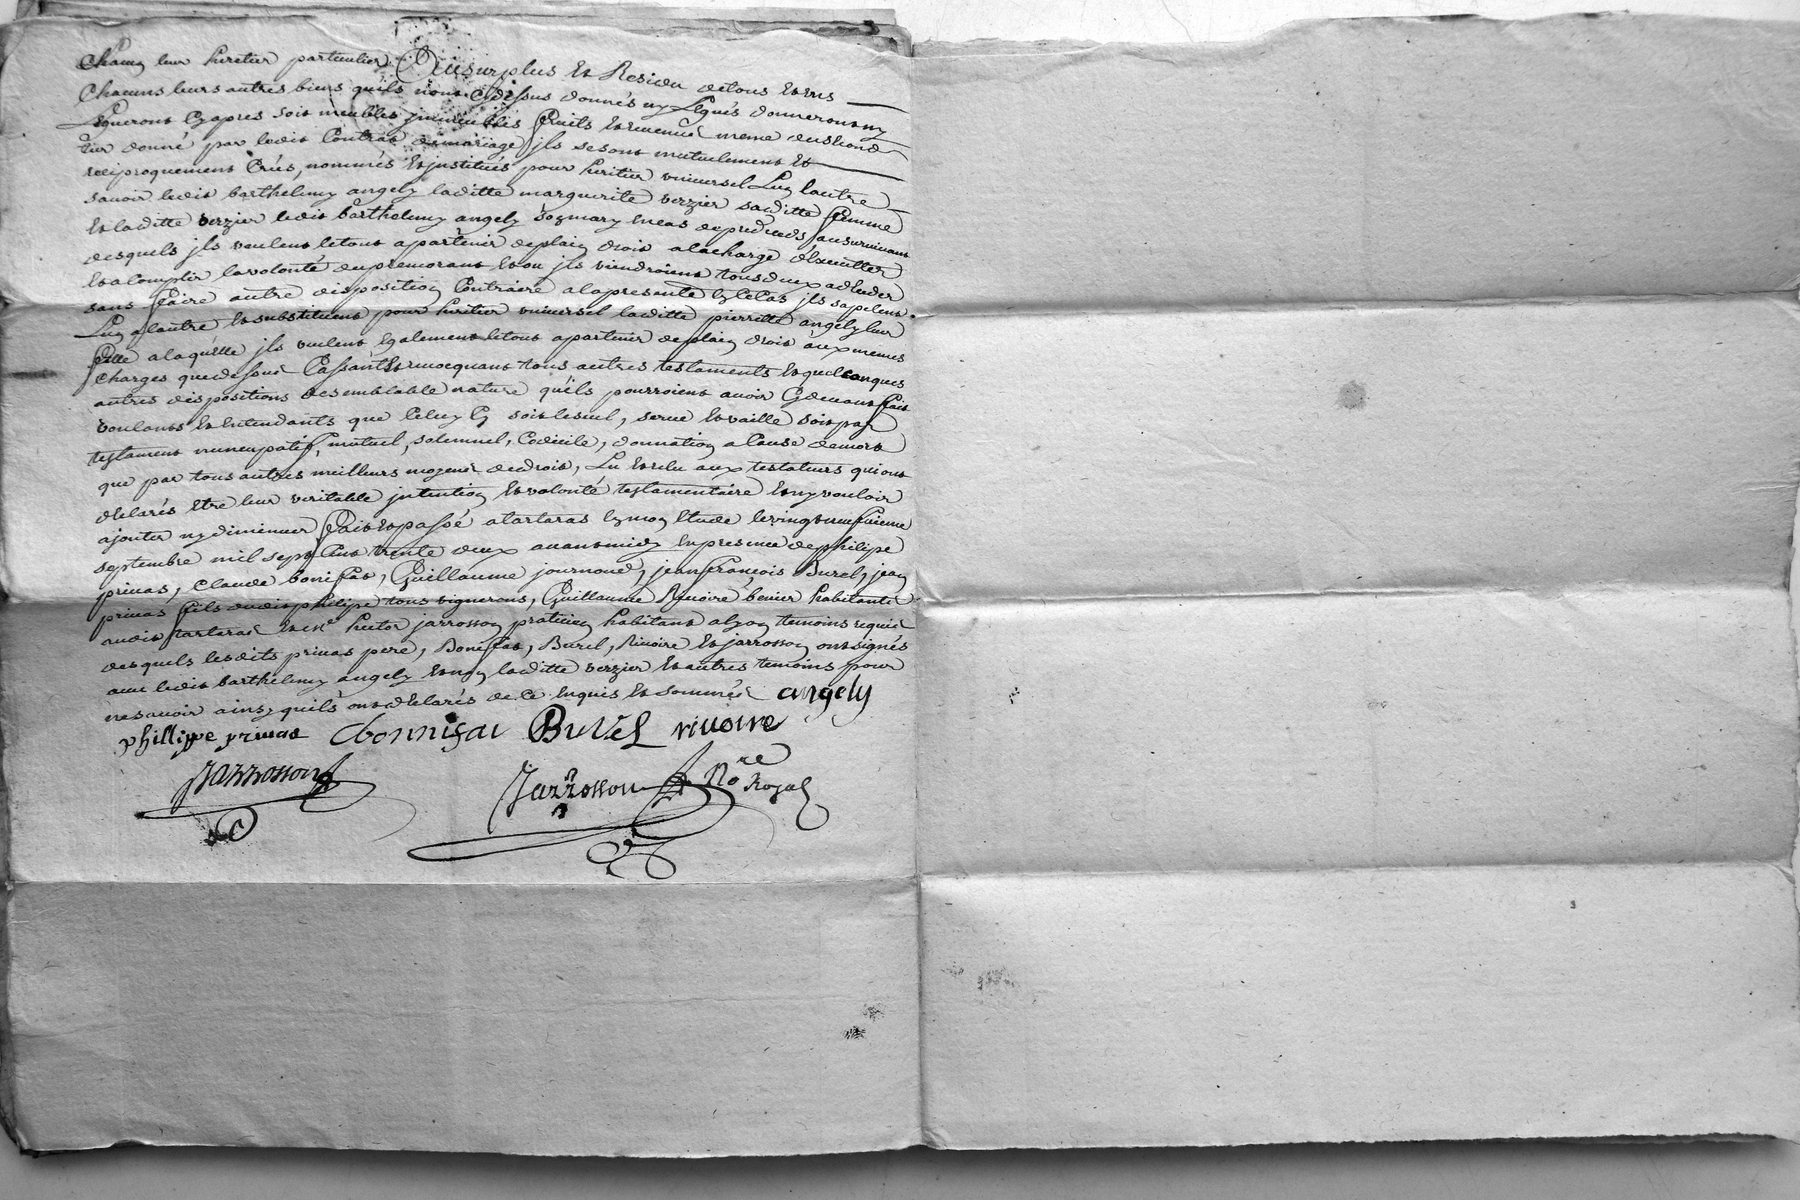 Chacun leur heretier particulier Au surplus Et Residu de tous Et uns
Chacuns leurs autres biens quils n'ont Cy dessus donnés ny Legués donneront ny
Legueront Cy apres soit meubles jmmeubles fruits Et revenus meme du
donné par ledit Contrat de mariage jls se sont mutuelement Et
reciproquement Créés, nommés Et justitués pour heritier universel Lun lautre
savoir ledit barthelemy angely laditte marguerite verzier saditte femme
Et laditte verzier ledit barthelemy angely son mary En cas de predeceds au survivant
desquels jls veulent le tout apartenir de plain droit a la charge d'Executter
Et acomplir la volonté du premorant Et ou jls viendroient tous deux a deceder
sans faire autre disposition Contraire a la presente En Ce Cas jls sapelent
Lun a lautre Et substituent pour heritier universel laditte pierrette angely leur
fille a laquelle jls veulent Egalement le tout apartenir de plain droit aux memes
Charges que dessus Cassants Et revoquant tous autres testaments Et quelconques
autres dispositions de semblable nature quils pourroient avoir Cy devant fait
voulants Et Entendants que Celuy Cy soit le seul, serve Et vaille soit par
testament nuncupatif, mutuel, solemnel, Codicile, donnation a Cause de mort
que par tous autres meilleurs moyens de droit, Lu Et relu aux testateurs qui ont
declarés Etre leur veritable jntention Et volonté testamentaire Et ny vouloir
ajouter ny diminuer fait Et passé a tartaras En mon Etude le vingt neufvieme
septembre mil sept Cent trente deux avant midy En presence de philipe
privas, Claude bonifat, Guillaume journoud, jean françois Burel, jean
privas fils dudit philipe tous vignerons, Guillaume Rivoire benier habitants
audit tartaras Et Me hector jarrosson praticien habitant a lyon temoins requis
desquels lesdits privas pere, Bonifat, Burel, Rivoire Et jarrosson ont signés
avec ledit barthelemy angely Et non laditte verzier Et autres temoins pour
ne savoir ainsy quils ont declarés de Ce Enquis Et sommés angely
phillippe privas Cbonnifai Burel rivoire
Jarrosson Jarrosson Nore Royal